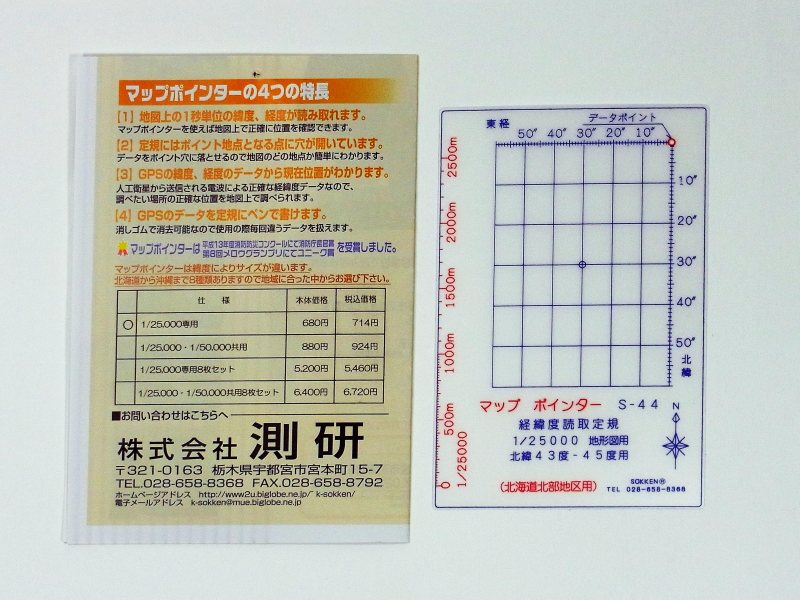 マップポインターの4つの特長
【1】地図上の1秒単位の緯度、経度が読み取れます。
マップポインターを使えば地図上で正確に位置を確認できます。
【2】定規にはポイント地点となる点に穴が開いています。
データをポイント穴に落とせるので地図のどの地点か簡単にわかります。
【3】GPSの緯度、経度のデータから現在位置がわかります。
人工衛星から送信される電波による正確な経緯度データなので、
調べたい場所の正確な位置を地図上で調べられます。
【4】GPSのデータを定規にペンで書けます。
消しゴムで消去可能なので使用の際毎回違うデータを扱えます。
マップポインターは 平成13年度消防防災コンクールにて消防庁長官賞
第8回メロウグランプリにてユニーク賞 を受賞しました。
マップポインターは緯度によりサイズが違います。
北海道から沖縄まで8種類ありますので地域に合った中からお選び下さい。
仕 様 本体価格 税込価格
○ 1/25,000専用 680円 714円
1/25,000・1/50,000共用 880円 924円
1/25,000専用8枚セット 5,200円 5,460円
1/25,000・1/50,000共用8枚セット 6,400円 6,720円
■お問い合わせはこちらへ
株式会社 測研
〒321-0163 栃木県宇都宮市宮本町15-7
TEL.028-658-8368 FAX.028-658-8792
ホームページアドレス http://www2u.biglobe.ne.jp/~k-sokken/
電子メールアドレス k-sokken@mue.biglobe.ne.jp
データポイント
東経
50″ 40″ 30″ 20″ 10″
10″
20″
30″
40″
50″
北緯
2500m
2000m
1500m
1000m
500m
0
1/25000
マップ ポインター S-44
経緯度読取定規
1/25000 地形図用
北緯43度-45度用
(北海道北部地区用)
N
SOKKEN®
TEL 028-658-8368